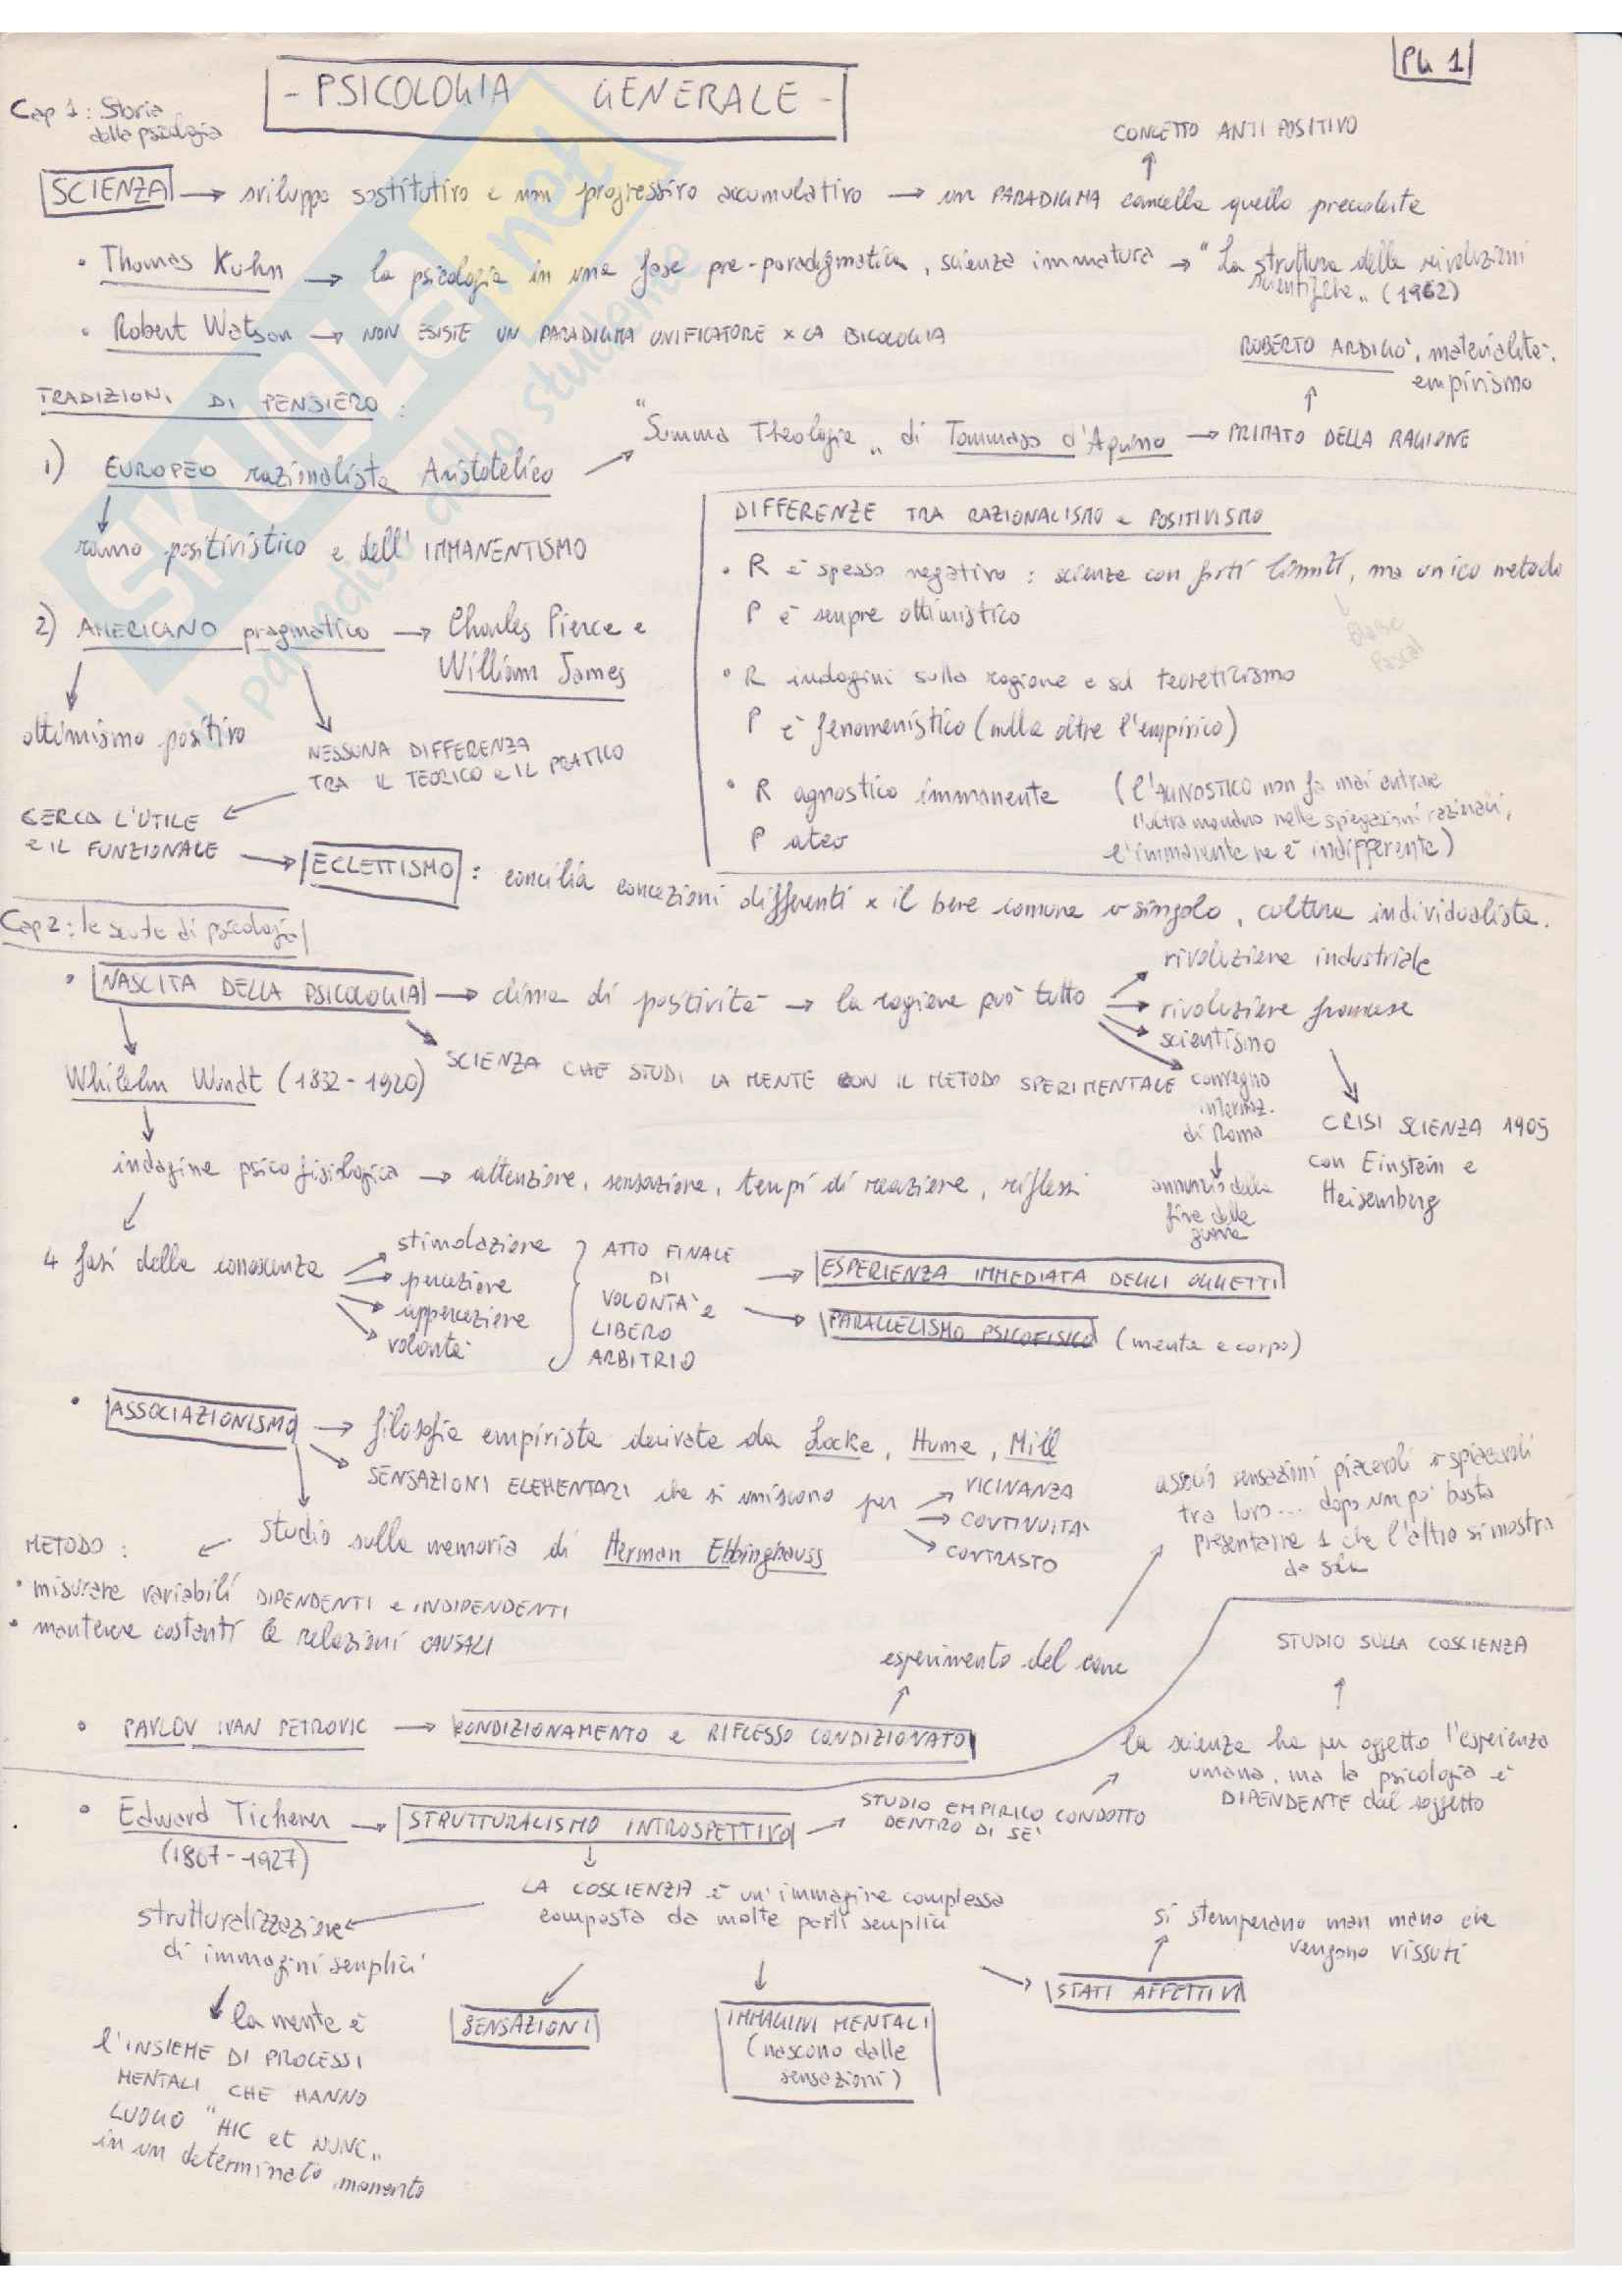 PG 1
- PSICOLOGIA GENERALE -
Cap 1: Storia
della psicologia
CONCETTO ANTI POSITIVO
SCIENZA → sviluppo sostitutivo e non progressivo accumulativo → un PARADIGMA cancella quello precedente
• Thomas Kuhn → la psicologia in una fase pre-paradigmatica, scienza immatura → "La struttura delle rivoluzioni
scientifiche" (1962)
• Robert Watson → NON ESISTE UN PARADIGMA UNIFICATORE x LA PSICOLOGIA
ROBERTO ARDIGO', materialità,
empirismo
TRADIZIONI DI PENSIERO:
"Summa Theologia" di Tommaso d'Aquino → PRIMATO DELLA RAGIONE
1) EUROPEO razionalista Aristotelico
ramo positivistico e dell'IMMANENTISMO
2) AMERICANO pragmatico → Charles Pierce e
William James
ottimismo positivo
NESSUNA DIFFERENZA
TRA IL TEORICO e IL PRATICO
CERCA L'UTILE
e IL FUNZIONALE
DIFFERENZE TRA RAZIONALISMO e POSITIVISMO
• R è spesso negativo: scienze con forti limiti, ma unico metodo
Blaise
Pascal
P è sempre ottimistico
• R indagini sulla ragione e sul teoreticismo
P è fenomenistico (nulla oltre l'empirico)
• R agnostico immanente (l'AGNOSTICO non fa mai entrare
l'ultra mondano nelle spiegazioni razionali,
P ateo
l'immanente ne è indifferente)
→ ECLETTISMO: concilia concezioni differenti x il bene comune o singolo, cultura individualista.
Cap 2: le scuole di psicologia
• NASCITA DELLA PSICOLOGIA → clima di positività → la ragione può tutto
rivoluzione industriale
rivoluzione francese
scientismo
convegno
internaz.
di Roma
annuncio della
fine delle
guerre
CRISI SCIENZA 1905
con Einstein e
Heisemberg
SCIENZA CHE STUDI LA MENTE CON IL METODO SPERIMENTALE
Whilelm Wundt (1832-1920)
indagine psicofisiologica → attenzione, sensazione, tempi di reazione, riflessi
4 fasi della conoscenza
stimolazione
percezione
appercezione
volontà
ATTO FINALE
DI
VOLONTA' e
LIBERO
ARBITRIO
→ ESPERIENZA IMMEDIATA DEGLI OGGETTI
→ PARALLELISMO PSICOFISICO (mente e corpo)
• ASSOCIAZIONISMO → filosofia empirista derivata da Locke, Hume, Mill
SENSAZIONI ELEMENTARI che si uniscono per
VICINANZA
CONTINUITA'
CONTRASTO
studio sulla memoria di Herman Ebbinghauss
METODO:
• misurare variabili DIPENDENTI e INDIPENDENTI
• mantenere costanti le relazioni CAUSALI
sensazioni piacevoli o spiacevoli
tra loro... dopo un po' basta
presentarne 1 che l'altro si mostra
da solo
esperimento del cane
• PAVLOV IVAN PETROVIC → CONDIZIONAMENTO e RIFLESSO CONDIZIONATO
STUDIO SULLA COSCIENZA
la scienza ha per oggetto l'esperienza
umana, ma la psicologia è
DIPENDENTE dal soggetto
• Edward Tichener → STRUTTURALISMO INTROSPETTIVO →
(1867-1927)
STUDIO EMPIRICO CONDOTTO
DENTRO DI SE'
LA COSCIENZA è un'immagine complessa
composta da molte parti semplici
strutturalizzazione
di immagini semplici
la mente è
l'INSIEME DI PROCESSI
MENTALI CHE HANNO
LUOGO "HIC et NUNC"
in un determinato momento
SENSAZIONI
IMMAGINI MENTALI
(nascono dalle
sensazioni)
STATI AFFETTIVI
si stemperano man mano che
vengono vissuti
SKUOLA.net
il paradiso dello studente